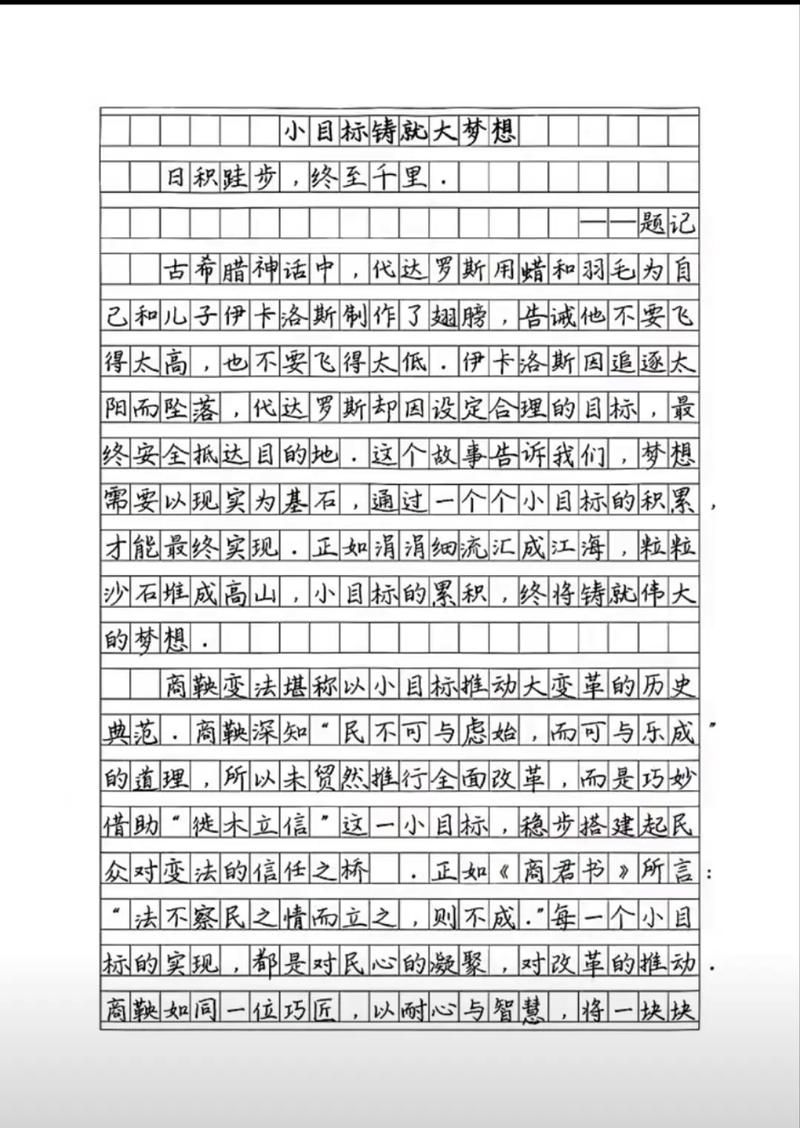 小目标铸就大梦想
日积跬步，终至千里．
——题记
古希腊神话中，代达罗斯用蜡和羽毛为自
己和儿子伊卡洛斯制作了翅膀，告诫他不要飞
得太高，也不要飞得太低．伊卡洛斯因追逐太
阳而坠落，代达罗斯却因设定合理的目标，最
终安全抵达目的地．这个故事告诉我们，梦想
需要以现实为基石，通过一个个小目标的积累，
才能最终实现．正如涓涓细流汇成江海，粒粒
沙石堆成高山，小目标的累积，终将铸就伟大
的梦想．
商鞅变法堪称以小目标推动大变革的历史
典范．商鞅深知“民不可与虑始，而可与乐成”
的道理，所以未贸然推行全面改革，而是巧妙
借助“徙木立信”这一小目标，稳步搭建起民
众对变法的信任之桥．正如《商君书》所言：
“法不察民之情而立之，则不成．”每一个小目
标的实现，都是对民心的凝聚，对改革的推动．
商鞅如同一位巧匠，以耐心与智慧，将一块块